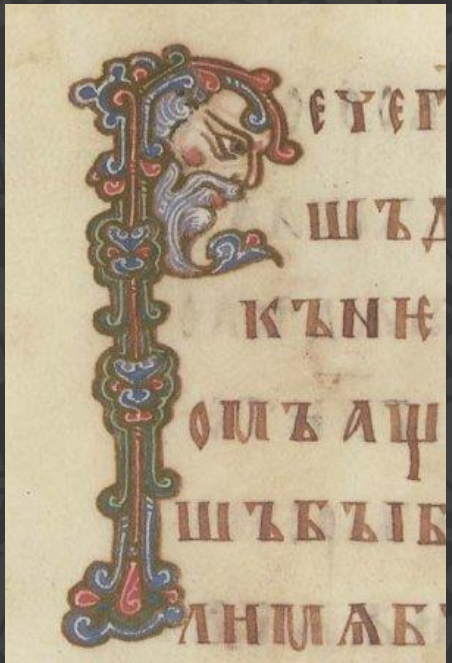 Речег
шъд
кънѥ
омъащ
шъбъıб
лимѧбъ